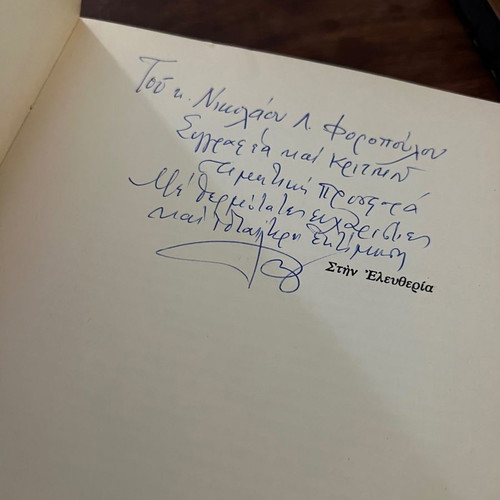 Τοῦ κ. Νικολάου Λ. Φοροπούλου
Συγγραφέα καί κριτικοῦ
τιμητική προσφορά
Μέ θερμότατες εὐχαριστίες
καί ἰδιαίτερη ἐκτίμηση
Στὴν Ἐλευθερία